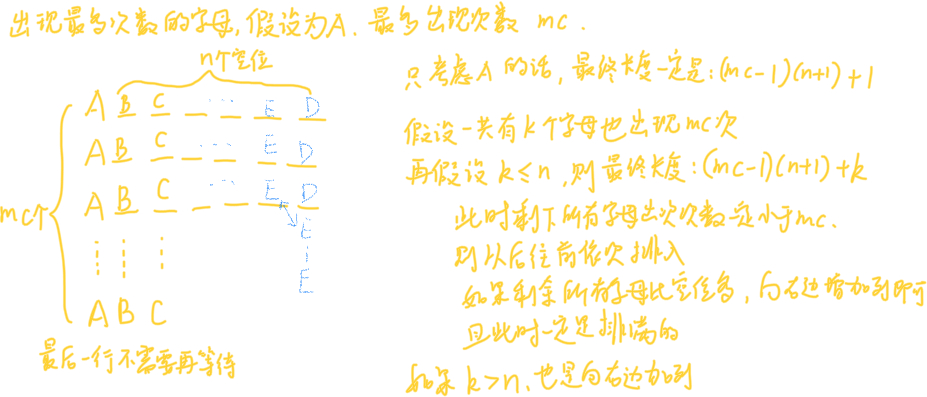 出现最多次数的字母,假设为A. 最多出现次数 mc.
n个空位
A B C _ ... _ E D
A B C _ ... _ E D
A B C _ ... _ E D
E
E
mc个
A B C
最后一行不需要再等待
只考虑A的话,最终长度一定是:(mc-1)(n+1)+1
假设一共有k个字母也出现mc次
再假设 k≤n,则最终长度:(mc-1)(n+1)+k
此时剩下所有字母出次次数一定小于mc.
则从后往前依次排入
如果剩余所有字母比空位多,向右边增加列即可
且此时一定是排满的
如果 k>n,也是向右边加列